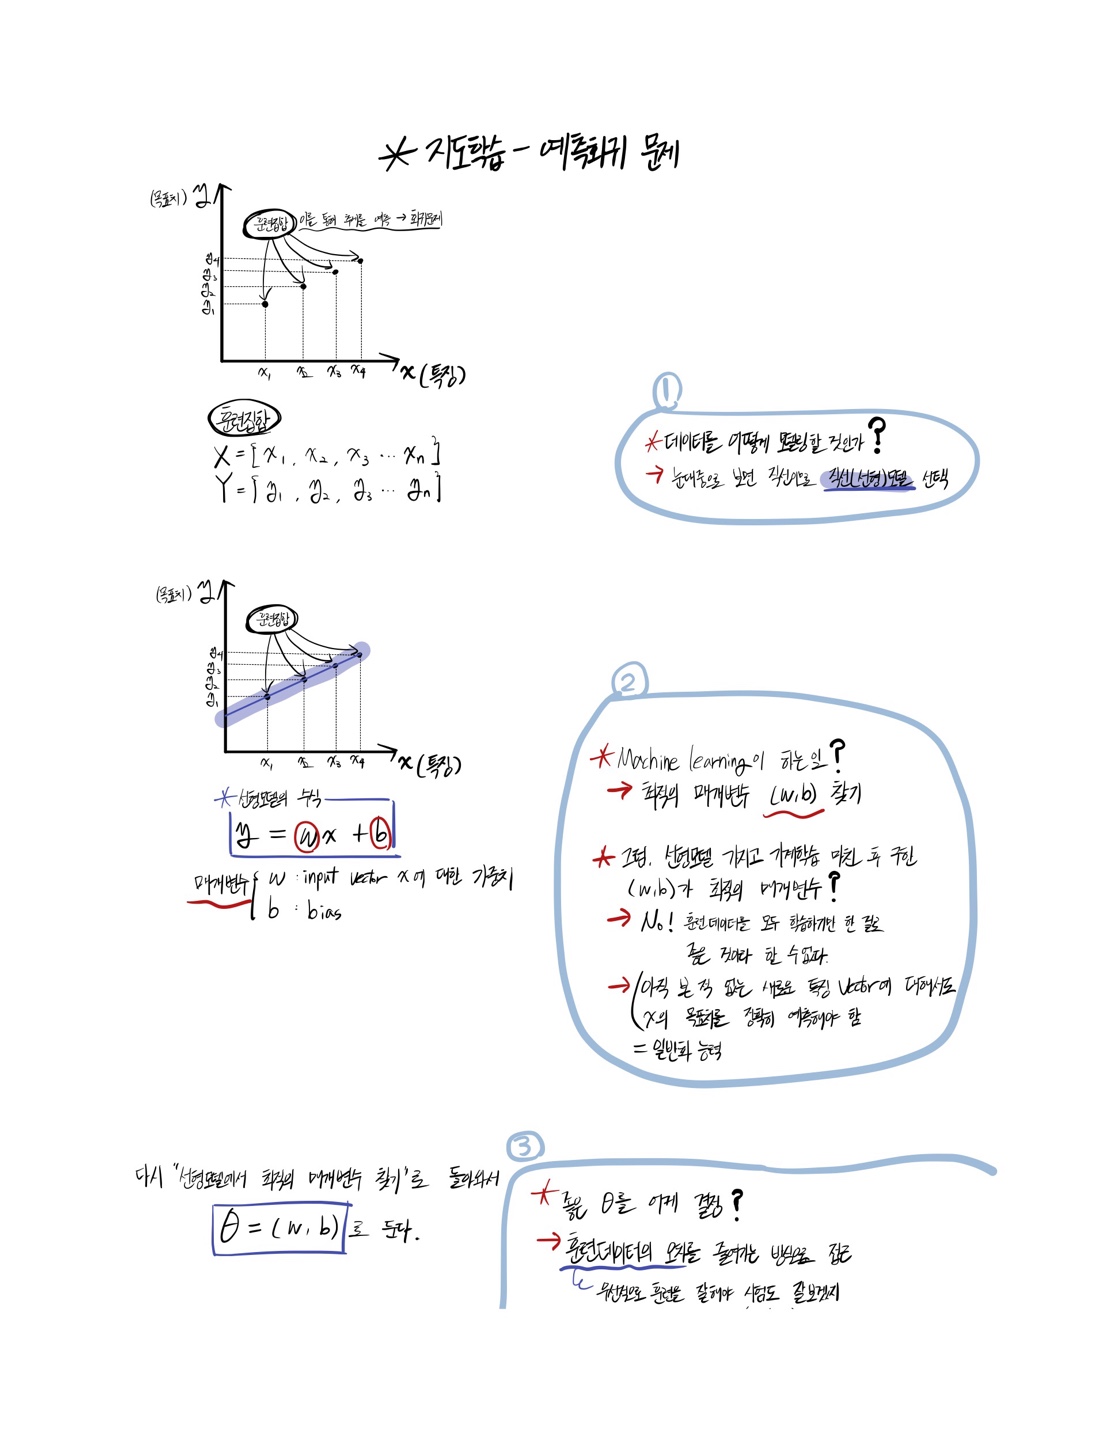 * 지도학습 - 예측회귀 문제
(목표치) y
훈련집합 이를 통해 추세를 예측 → 회귀문제
y4
y3
y2
y1
x1 x2 x3 x4 x(특징)
훈련집합
X = [x1, x2, x3 ... xn]
Y = [y1, y2, y3 ... yn]
①
* 데이터를 어떻게 모델링할 것인가?
→ 눈대중으로 보면 직선이므로 직선(선형)모델 선택
(목표치) y
훈련집합
y4
y3
y2
y1
x1 x2 x3 x4 x(특징)
* 선형모델의 수식
y = wx + b
매개변수 w : input vector x에 대한 가중치
b : bias
②
* Machine learning이 하는일?
→ 최적의 매개변수 (w,b) 찾기
* 그럼, 선형모델 가지고 기계학습 마친 후 구한
(w,b)가 최적의 매개변수?
→ No! 훈련데이터를 모두 학습하기만 한 걸로
좋은 것이라 할 수없다.
→ (아직 본 적 없는 새로운 특징 vector에 대해서도
x의 목표치를 정확히 예측해야 함
= 일반화 능력
다시 "선형모델에서 최적의 매개변수 찾기"로 돌아와서
θ = (w, b) 로 둔다.
③
* 좋은 θ를 어케 결정?
→ 훈련데이터의 오차를 줄여가는 방식으로 접근
우선적으로 훈련을 잘해야 시험도 잘보겠지